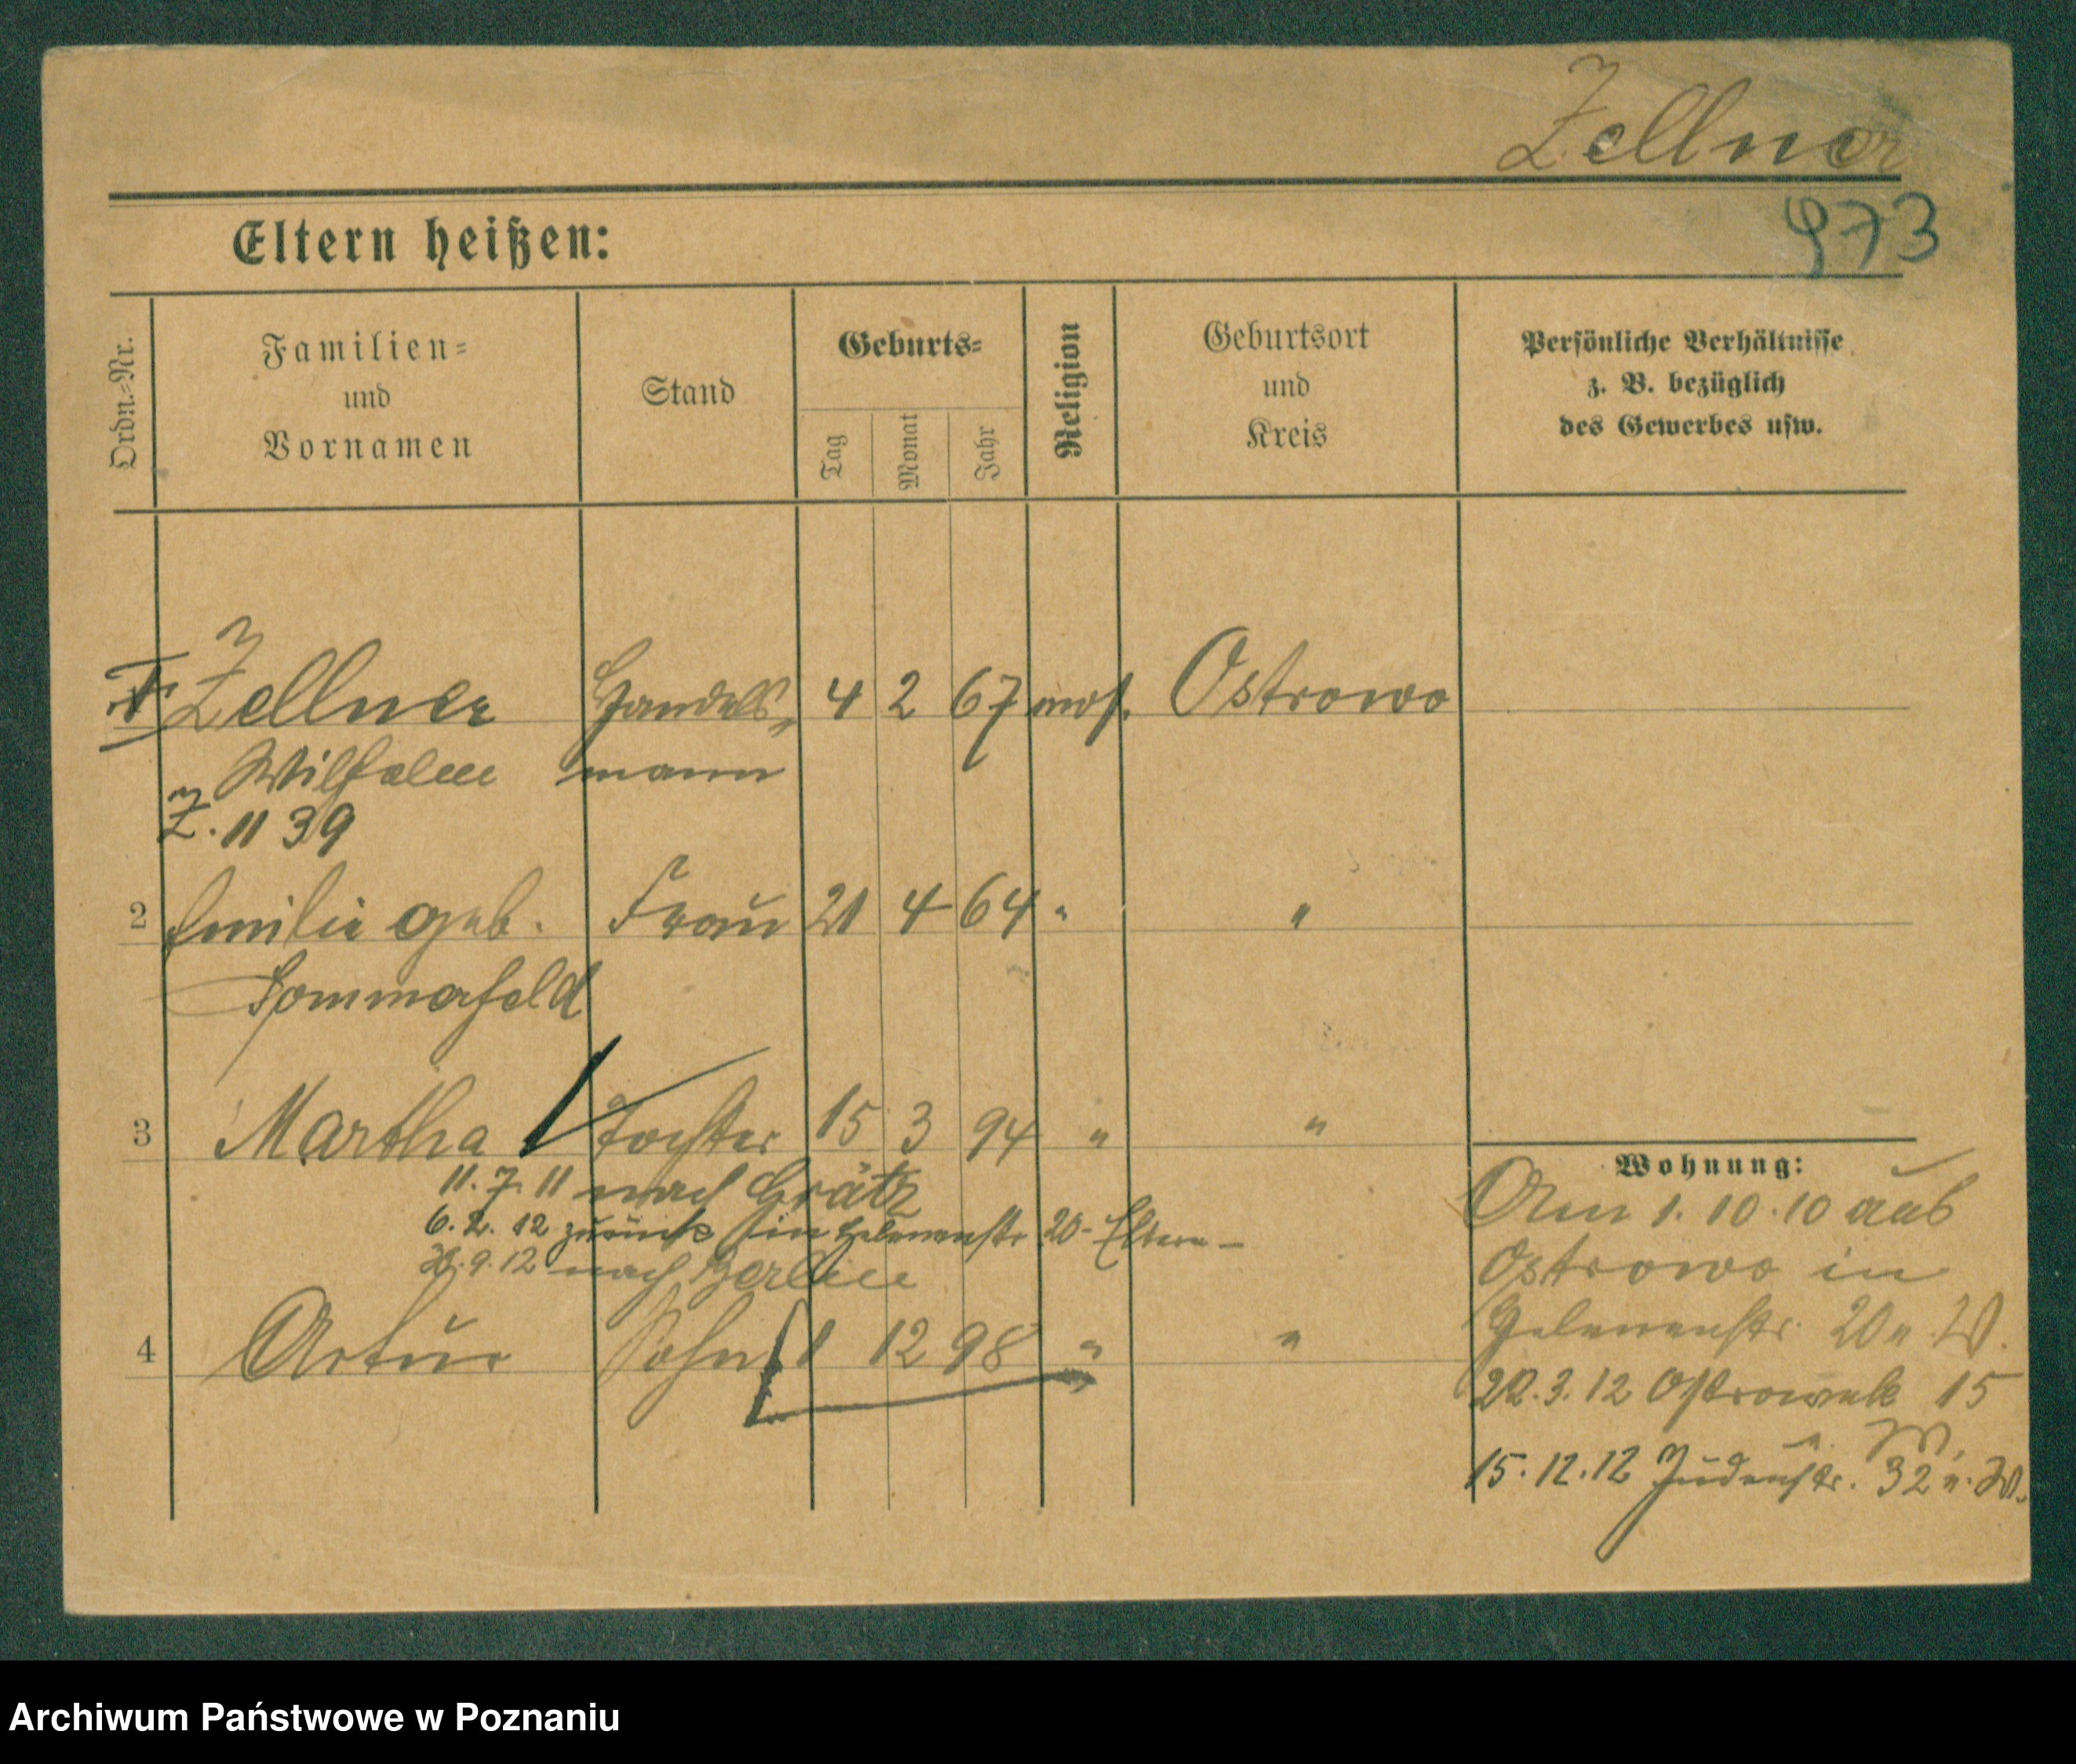 Zellner
973
Eltern heißen:
Ordn.-Nr. Familien- und Vornamen Stand Geburts- Tag Monat Jahr Religion Geburtsort und Kreis Persönliche Verhältnisse z. B. bezüglich des Gewerbes usw.
Zellner Handels- 4 2 67 mos. Ostrowo
Wilhelm mann
Z. 1139
2 Emilie geb. Frau 21 4 64 " "
Sommerfeld
3 Martha Tochter 15 3 94 " "
11.7.11 nach Grätz
6.2.12 zurück in Helenenstr 20 - Eltern -
9.12 nach Berlin
4 Artur Sohn 1 12 98 " "
Wohnung:
Am 1.10.10 aus
Ostrowo in
Helenenstr. 20 W.
22.3.12 Ostrowek 15
15.12.12 Judenstr. 32 W.
Archiwum Państwowe w Poznaniu